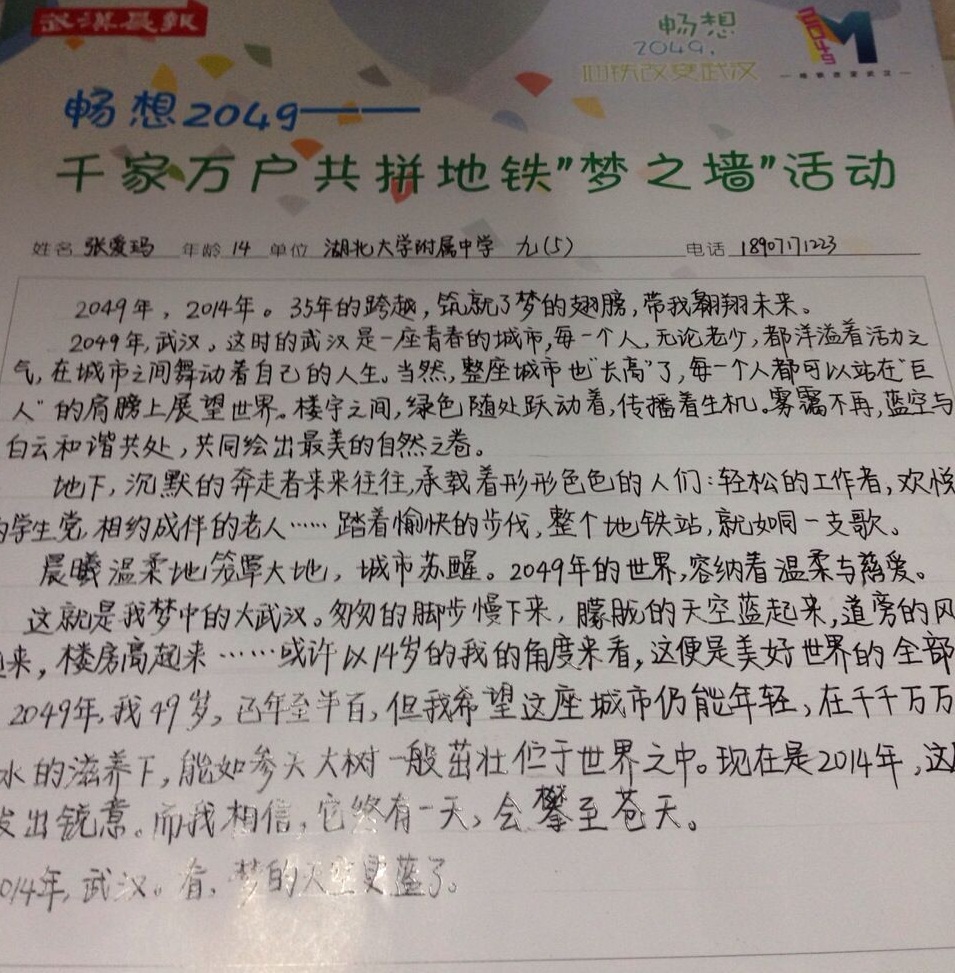 武汉晨报
畅想
2049,
地铁改变武汉
2049
M
地铁改变武汉
畅想2049——
千家万户共拼地铁"梦之墙"活动
姓名 张爱玛 年龄 14 单位 湖北大学附属中学 九(5) 电话 18907171223
2049年，2014年。35年的跨越，筑就了梦的翅膀，带我翱翔未来。
2049年，武汉。这时的武汉是一座青春的城市，每一个人，无论老少，都洋溢着活力之
气，在城市之间舞动着自己的人生。当然，整座城市也"长高"了，每一个人都可以站在"巨
人"的肩膀上展望世界。楼宇之间，绿色随处跃动着，传播着生机。雾霭不再，蓝空与
白云和谐共处，共同绘出最美的自然之卷。
地下，沉默的奔走者来来往往，承载着形形色色的人们：轻松的工作者，欢悦
的学生党，相约成伴的老人……踏着愉快的步伐，整个地铁站，就如同一支歌。
晨曦温柔地笼罩大地，城市苏醒。2049年的世界，容纳着温柔与慈爱。
这就是我梦中的大武汉。匆匆的脚步慢下来，朦胧的天空蓝起来，道旁的风
来，楼房高起来……或许以14岁的我的角度来看，这便是美好世界的全部
2049年，我49岁，已年至半百，但我希望这座城市仍能年轻，在千千万万
水的滋养下，能如参天大树一般茁壮伫于世界之中。现在是2014年，这
发出锐意。而我相信，它终有一天，会攀至苍天。
014年，武汉。看，梦的天空更蓝了。